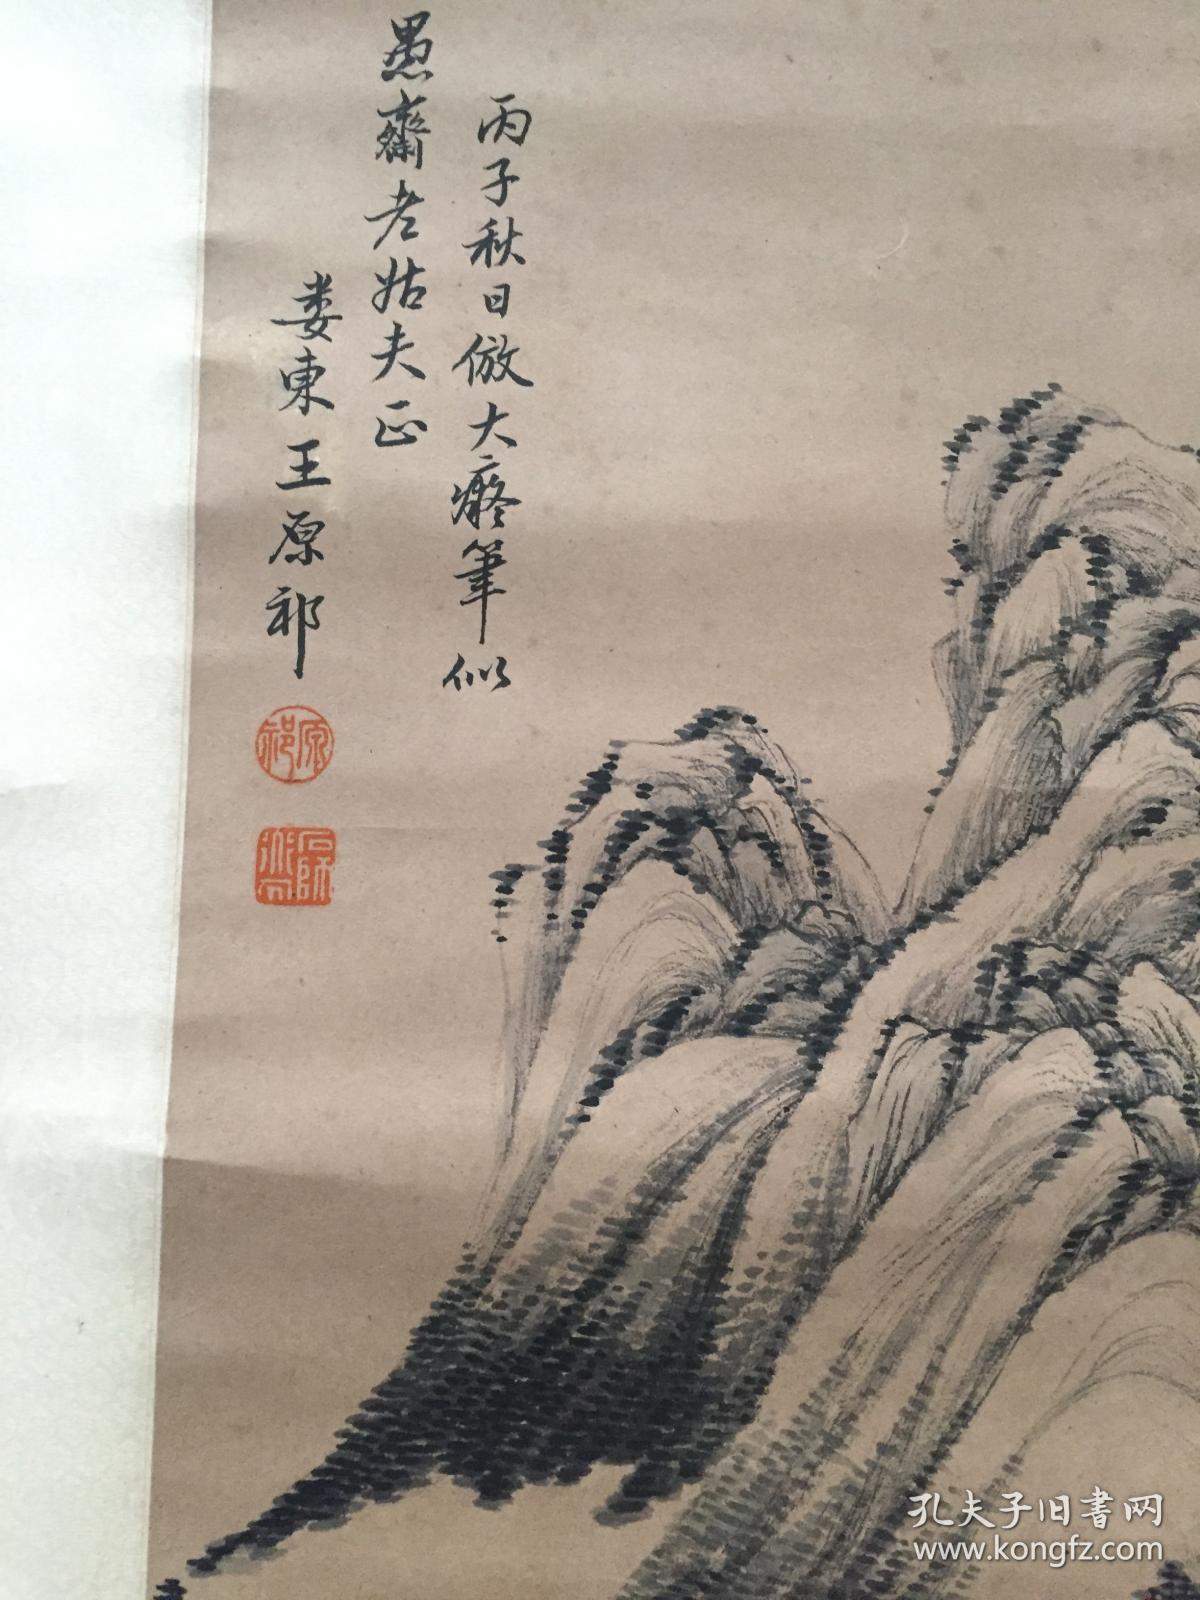 丙子秋日倣大癡筆似
愚齋老姑夫正
婁東王原祁
原祁
孔夫子旧書网
www.kongfz.com